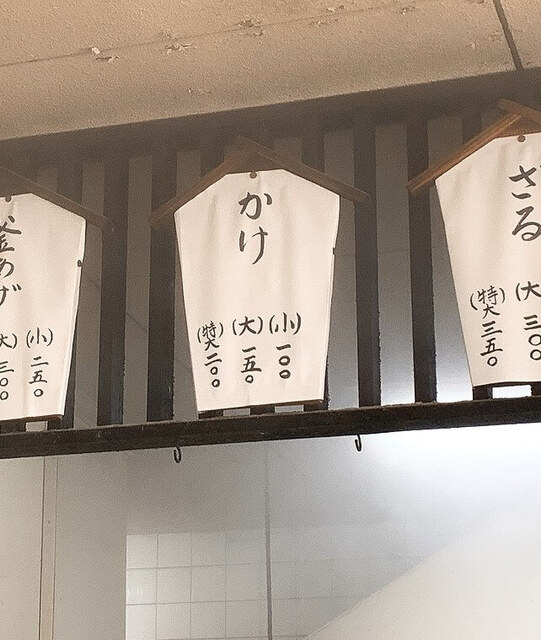 ざる
(大)三〇〇
(特大)三五〇
かけ
(小)一〇〇
(大)一五〇
(特大)二〇〇
釜あげ
(小)二五〇
(大)三〇〇